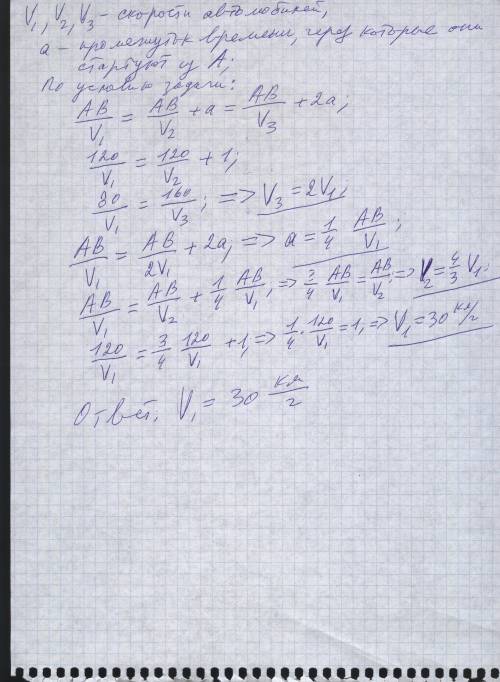 V₁, V₂, V₃ - скорости автомобилей,
a - промежуток времени, через которые они
стартуют из A;
По условию задачи:
AB/V₁ = AB/V₂ + a = AB/V₃ + 2a;
120/V₁ = 120/V₂ + 1;
80/V₁ = 160/V₃; => V₃ = 2V₁;
AB/V₁ = AB/2V₁ + 2a; => a = 1/4 AB/V₁;
AB/V₁ = AB/V₂ + 1/4 AB/V₁; => 3/4 AB/V₁ = AB/V₂; => V₂ = 4/3 V₁;
120/V₁ = 3/4 120/V₁ + 1; => 1/4 · 120/V₁ = 1, => V₁ = 30 км/г
Ответ. V₁ = 30 км/г